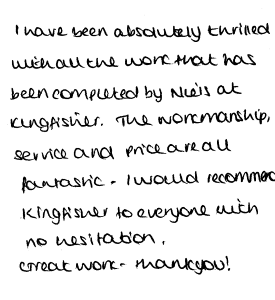 I have been absolutely thrilled
with all the work that has
been completed by Neils at
Kingfisher. The workmanship,
service and price are all
fantastic - I would recommend
Kingfisher to everyone with
no hesitation.
Great work - thankyou!